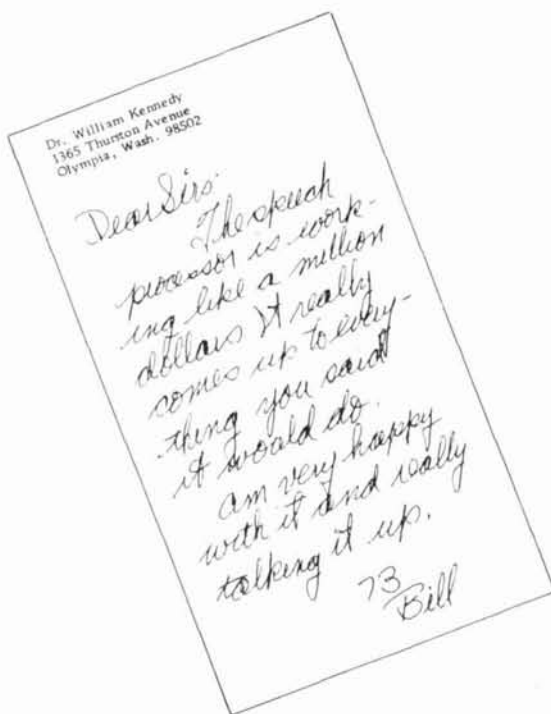 Dr. William Kennedy
1365 Thurston Avenue
Olympia, Wash. 98502
Dear Sirs.
The speech
processor is work-
ing like a million
dollars It really
comes up to every-
thing you said
it would do.
am very happy
with it and really
talking it up.
73
Bill